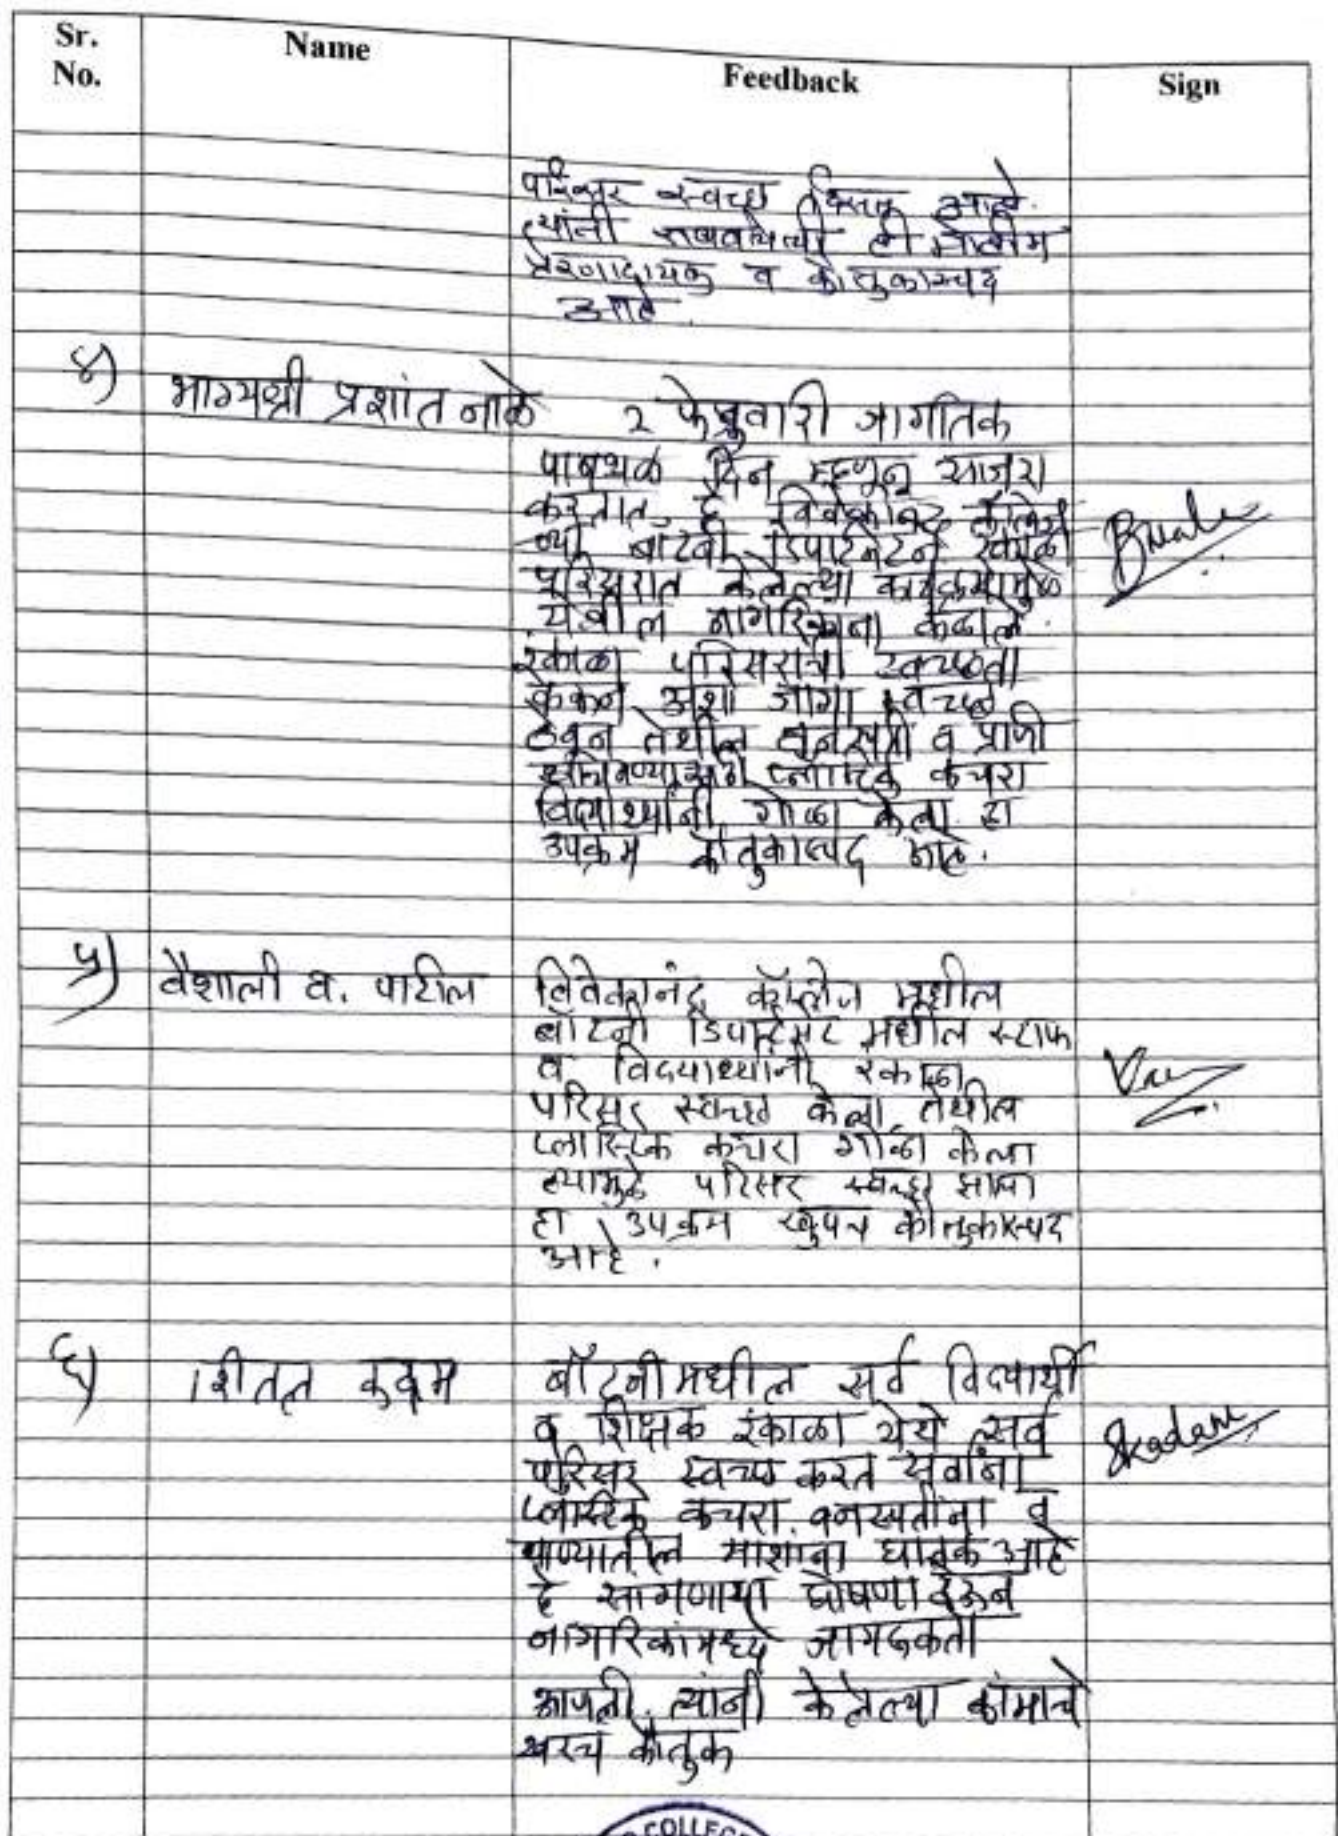 Sr. No. Name Feedback Sign
परिसर स्वच्छ दिसत आहे.
त्यांनी राबवलेली ही मोहीम
प्रेरणादायक व कौतुकास्पद
आहे.
४) भाग्यश्री प्रशांत नाळे २ फेब्रुवारी जागतिक
पाणथळ दिन म्हणून साजरा
करतात. हे विवेकानंद कॉलेज
च्या बॉटनी डिपार्टमेंटने रंकाळा
परिसरात केलेल्या कार्यक्रमामुळे
येथील नागरिकांना कळाले.
रंकाळा परिसराची स्वच्छता
करून अशा जागा स्वच्छ
ठेवून तेथील वनस्पती व प्राणी
प्लास्टिक कचरा
विद्यार्थ्यांनी गोळा केला. हा
उपक्रम कौतुकास्पद आहे.
५) वैशाली व. पाटील विवेकानंद कॉलेज मधील
बॉटनी डिपार्टमेंट मधील स्टाफ
व विद्यार्थ्यांनी रंकाळा
परिसर स्वच्छ केला. तेथील
प्लास्टिक कचरा गोळा केला
त्यामुळे परिसर स्वच्छ झाला
हा उपक्रम खुपच कौतुकास्पद
आहे.
६) शितल कदम बॉटनीमधील सर्व विद्यार्थी
व शिक्षक रंकाळा येथे सर्व
परिसर स्वच्छ करत सर्वांना
प्लास्टिक कचरा वनस्पतींना व
पाण्यातील माशांना घातक आहे
हे सांगणाऱ्या घोषणा देऊन
नागरिकांमध्ये जागरूकता
आणली. त्यांनी केलेल्या कामाचे
खरच कौतुक
Skadam
COLLEGE